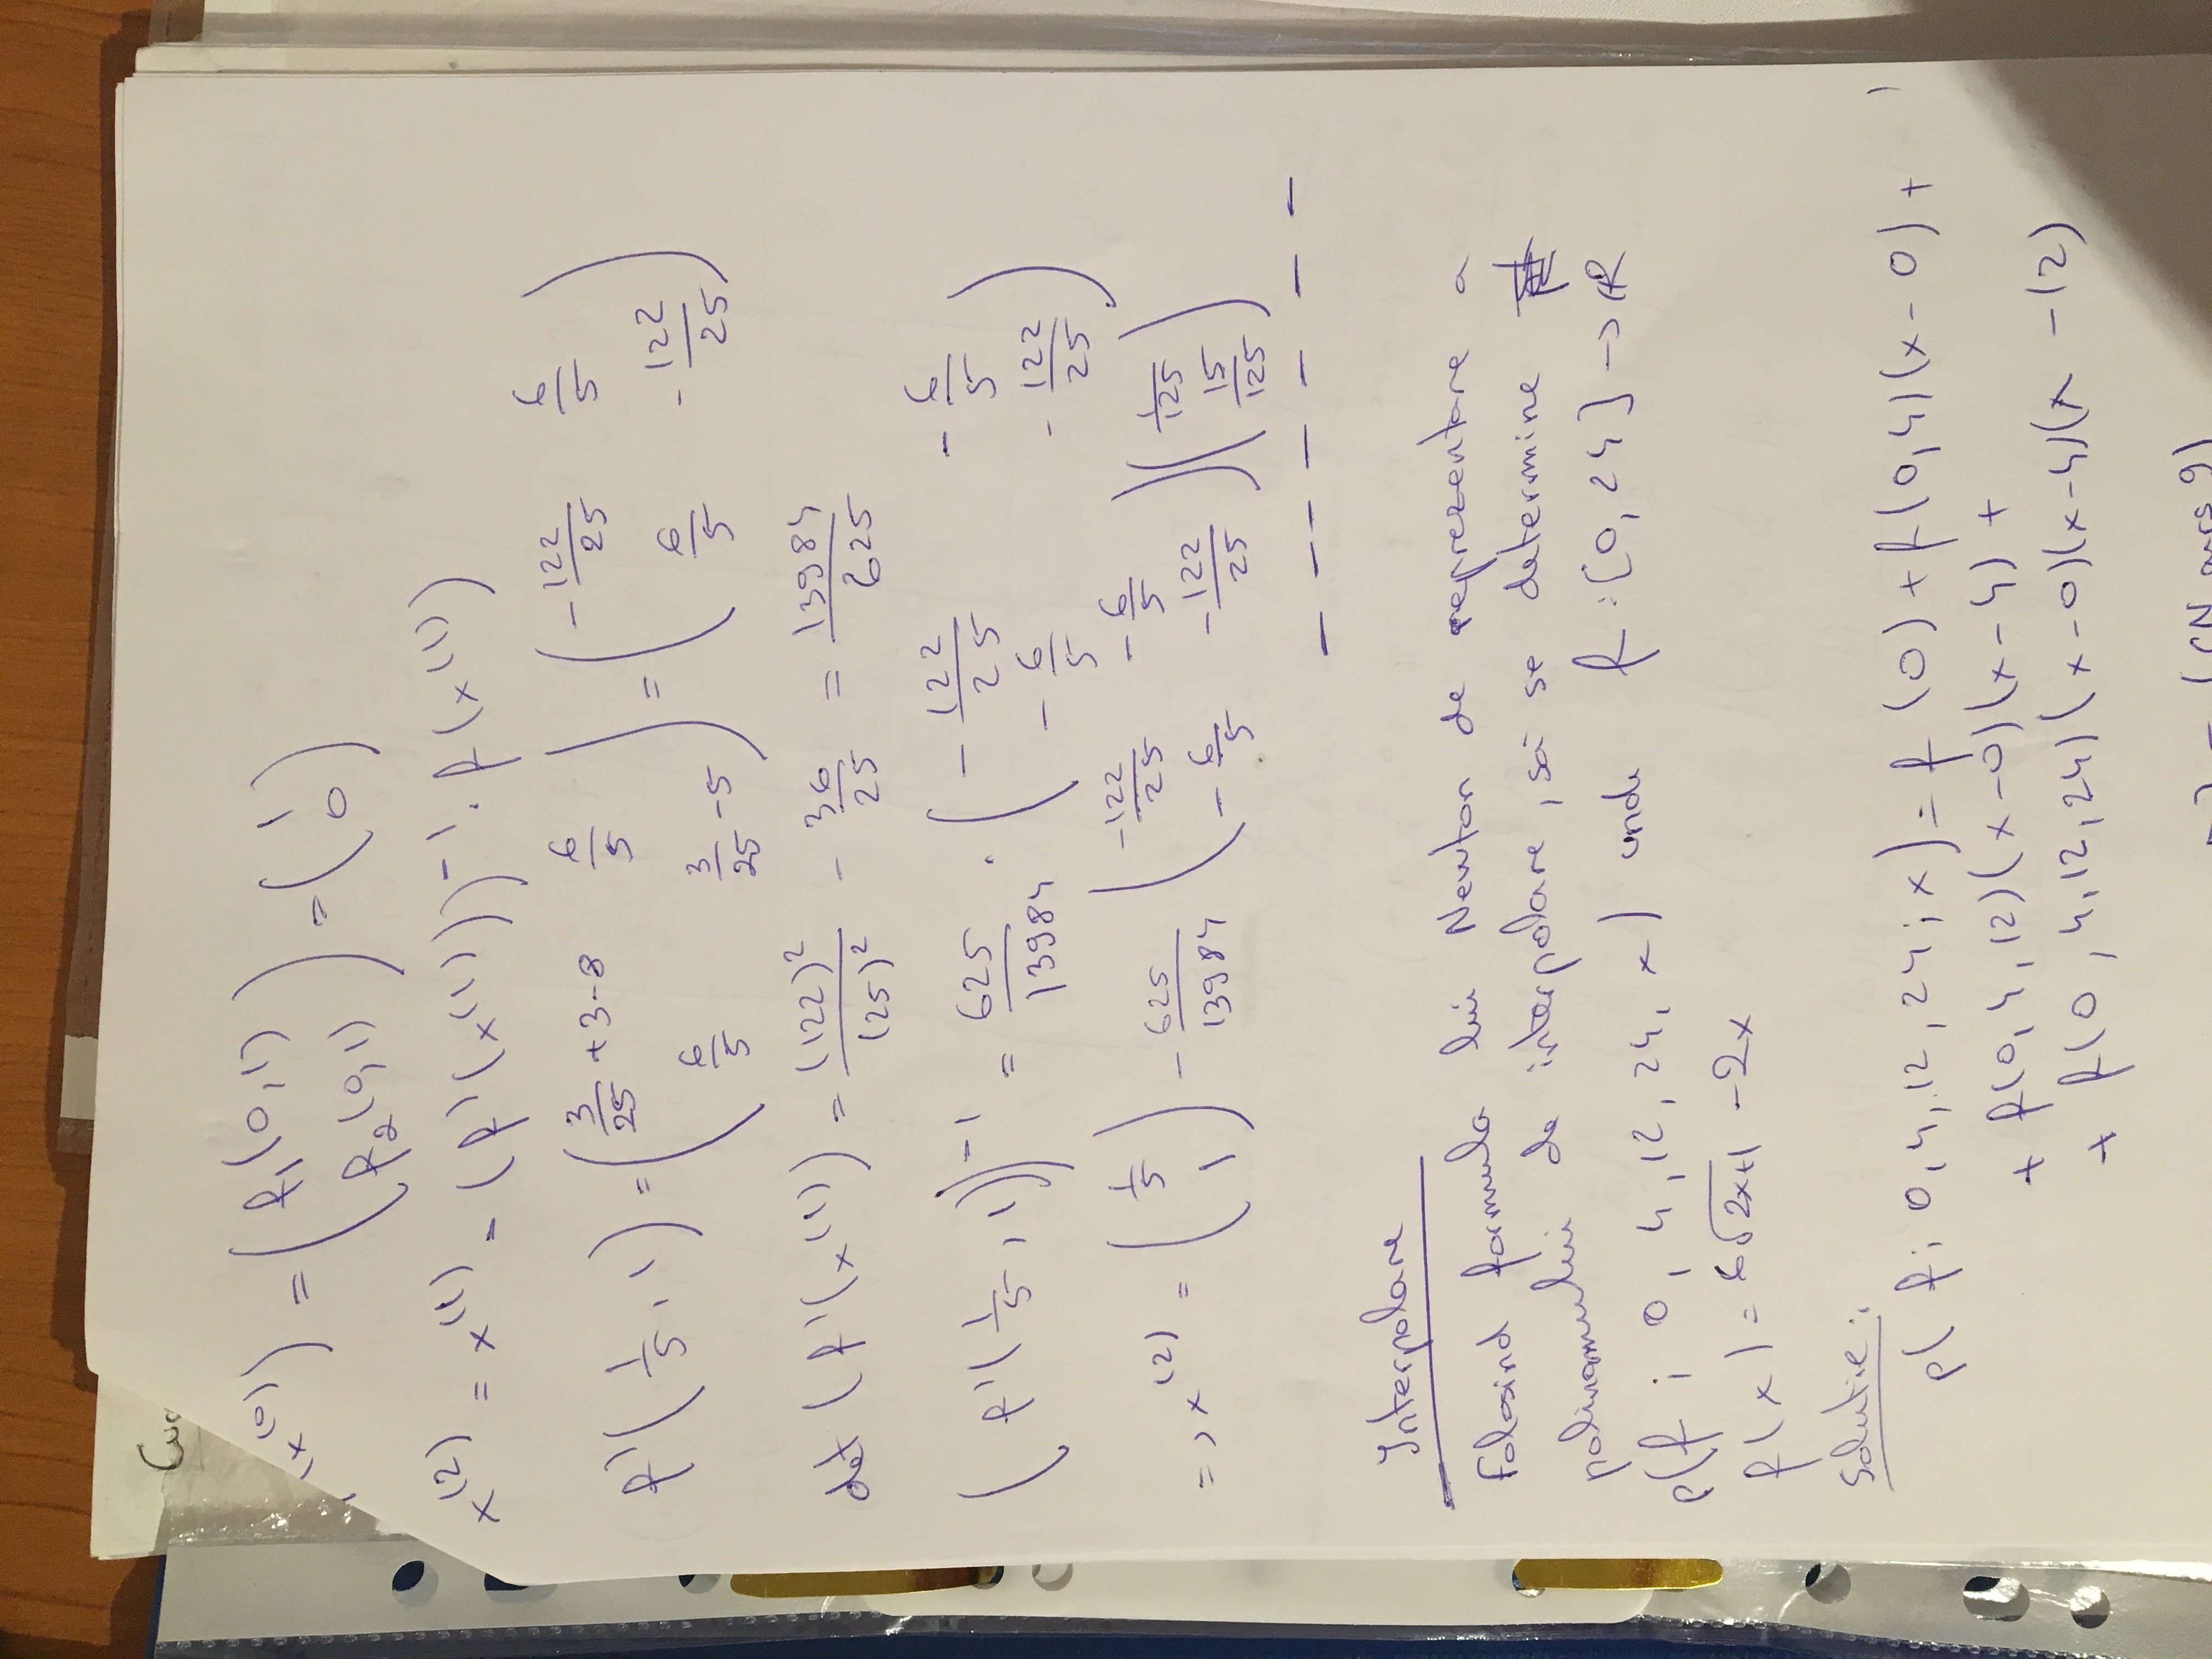 (x⁽⁰⁾) = (f₁(0,1) f₂(0,1)) = (1 0)
x⁽²⁾ = x⁽¹⁾ - (f'(x⁽¹⁾))⁻¹ · f(x⁽¹⁾)
f'(1/5, 1) = (3/25 + 3 - 8   6/5   6/5   3/25 - 5) = (-122/25   6/5   6/5   -122/25)
det (f'(x⁽¹⁾)) = (122)²/(25)² - 36/25 = 13984/625
(f'(1/5, 1))⁻¹ = 625/13984 · (-122/25   -6/5   -6/5   -122/25)
=> x⁽²⁾ = (1/5   1) - 625/13984 (-122/25   -6/5   -6/5   -122/25)(1/125   15/125)
Interpolare
Folosind formula lui Newton de reprezentare a
polinomului de interpolare, să se determine
P(f; 0, 4, 12, 24, x) unde f: [0, 24] -> R
f(x) = 6√2x+1 - 2x
Soluție:
P(f; 0, 4, 12, 24; x) = f(0) + f(0,4)(x-0) +
+ f(0, 4, 12)(x-0)(x-4) +
+ f(0, 4, 12, 24)(x-0)(x-4)(x-12)